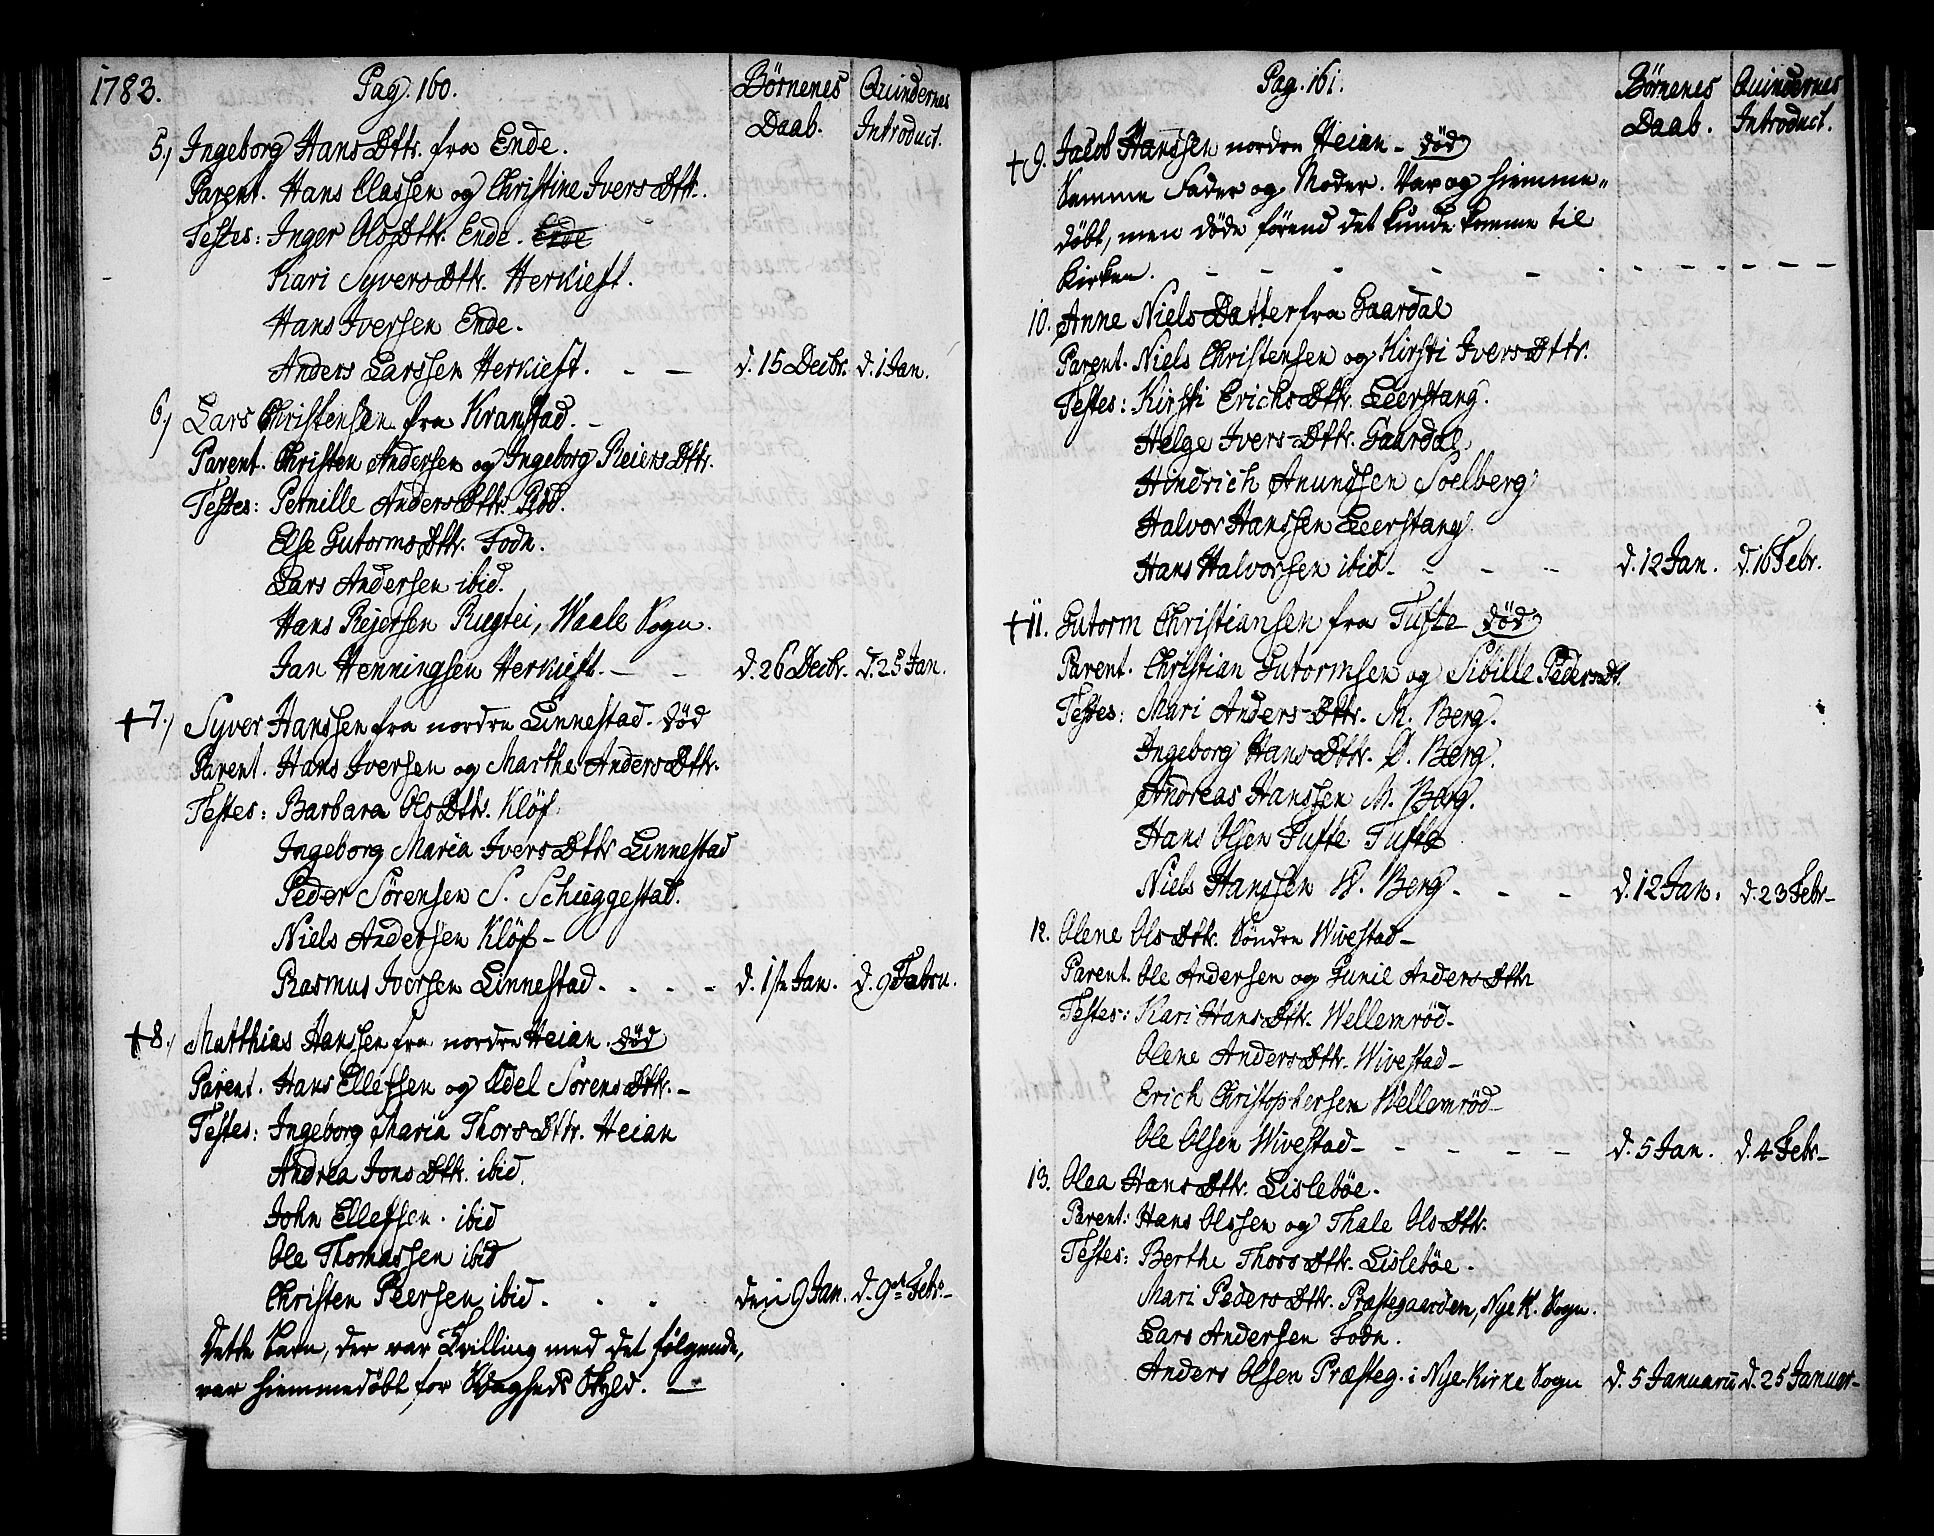 1783.
Pag. 160.
Børnenes Daab.
Quindernes Introduct.
5.) Ingeborg Hans Dttr. fra Ende.
Parent. Hans Classen og Christine Ivers Dttr.
Testes: Inger Ols Dttr. Ende. Ende
Kari Syvers Dttr. Herkieft.
Hans Iversen Ende.
Anders Larssen Herkieft. - - d. 15 Decbr. d. 1 Jan.
6.) Lars Christensen fra Kranstad. -
Parent. Christen Andersen og Ingeborg Reiers Dttr.
Testes: Pernille Anders Dttr. Röd.
Else Gutorms Dttr. Fodn.
Lars Andersen ibid.
Hans Rejersen Rugtei, Waale Sogn.
Jan Henningsen Herkieft. - - d. 26 Decbr. d. 25 Jan.
+ 7.) Syver Hanssen fra nordre Linnestad. död
Parent. Hans Iversen og Marthe Anders Dttr.
Testes: Barbara Ols Dttr. Klöf.
Ingeborg Maria Ivers Dttr Linnestad
Peder Sörensen S. Schieggestad.
Niels Andersen Klöf -
Rasmus Iversen Linnestad. - - - d. 1ste Jan. d. 9 Febru.
+ 8.) Matthias Hanssen fra nordre Heian. död
Parent. Hans Ellefsen og Edel Sorens Dttr. -
Testes: Ingeborg Maria Thors Dttr. Heian
Andrea Jons Dttr. ibid.
John Ellefsen. ibid
Ole Thomassen ibid
Christen Peersen ibid. - - - den 9 Jan. d. 9de Febr. -
Dette Barn, der var Tvilling med det følgende,
var hiemmedöbt for Svagheds Skyld. -
Pag. 161.
Børnenes Daab.
Quindernes Introduct.
+ 9. Jacob Hanssen nordre Heian - död
Samme Fader og Moder. Var og hiemme-
döbt, men döde förend det kunde komme til
Kirken. - - - - - - - - - - -
10. Anne Niels Datter fra Gaardal
Parent. Niels Christensen og Kirsti Ivers Dttr.
Testes: Kirsti Erichs Dttr. Leerstang.
Helge Ivers-Dttr. Gaardal
Hindrich Anundsen Soelberg
Halvor Hanssen Leerstang.
Hans Halvorsen ibid - - - - d. 12 Jan. d. 16 Febr.
+ 11. Gutorm Christiansen fra Tufte död
Parent. Christian Gutormsen og Sibille Peders Dt.
Testes: Mari Anders-Dttr. M. Berg.
Ingeborg Hans Dttr. Ø. Berg.
Andreas Hanssen M. Berg.
Hans Olsen Tufte Tufte
Niels Hanssen N. Berg. - - - d. 12 Jan. d. 23 Febr -
12. Olene Ols Dttr. Söndre Wivestad -
Parent. Ole Andersen og Gunil Anders Dttr
Testes: Kari Hans Dttr. Wellemröd -
Olene Anders Dttr. Wivestad -
Erich Christophersen Wellemröd -
Ole Olsen Wivestad - - - - - d. 5 Jan. d. 4 Febr -
13. Olea Hans Dttr. Lisleböe.
Parent: Hans Olssen og Thale Ols Dttr.
Testes: Berthe Thors Dttr. Lisleböe.
Mari Peders Dttr. Præstegaarden, Nye K. Sogn.
Lars Andersen Fodn.
Anders Olsen Præsteg. i Nye-Kirne Sogn d. 5 Januarii d. 25 Januar -